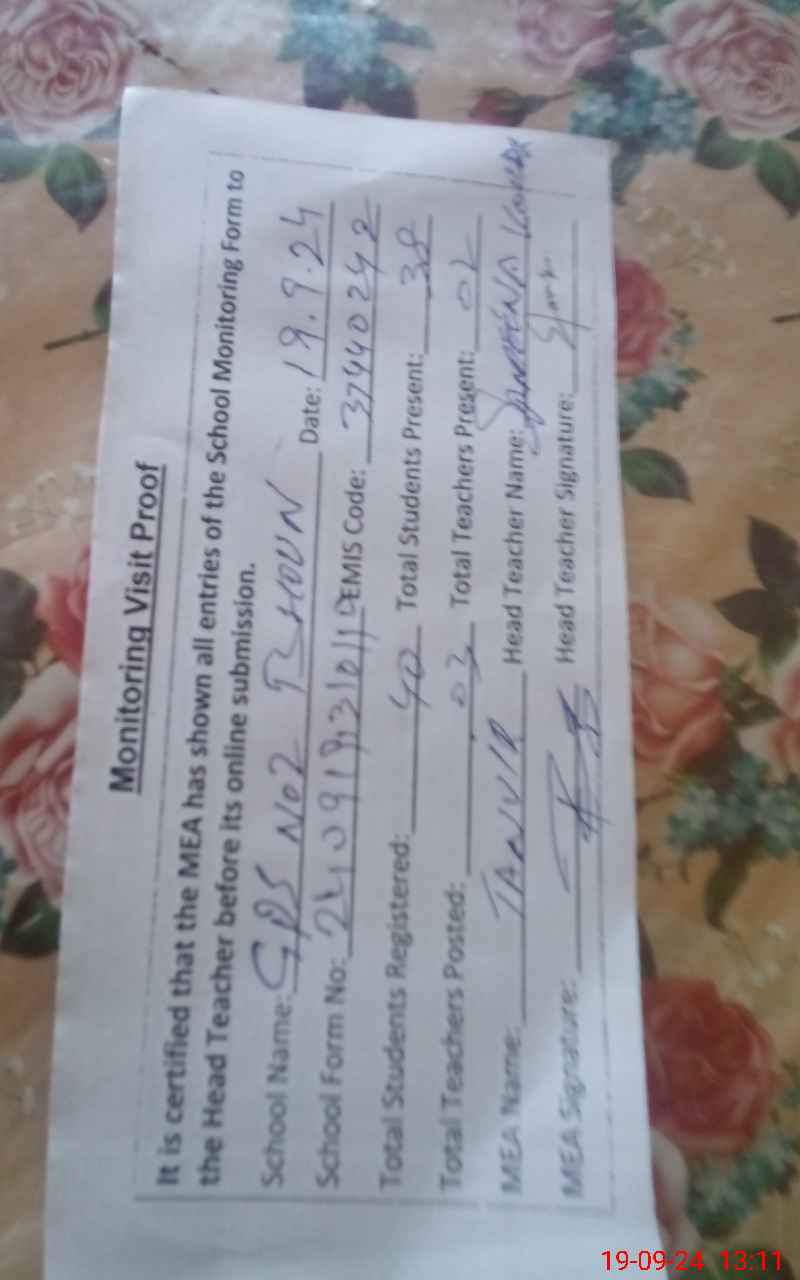 Monitoring Visit Proof
It is certified that the MEA has shown all entries of the School Monitoring Form to
the Head Teacher before its online submission.
School Name: GPS NO2 Date: 19.9.24
School Form No: EMIS Code: 37440242
Total Students Registered: 40 Total Students Present: 38
Total Teachers Posted: 03 Total Teachers Present: 02
MEA Name: TANVIR Head Teacher Name:
MEA Signature: Head Teacher Signature:
19-09-24 13:11